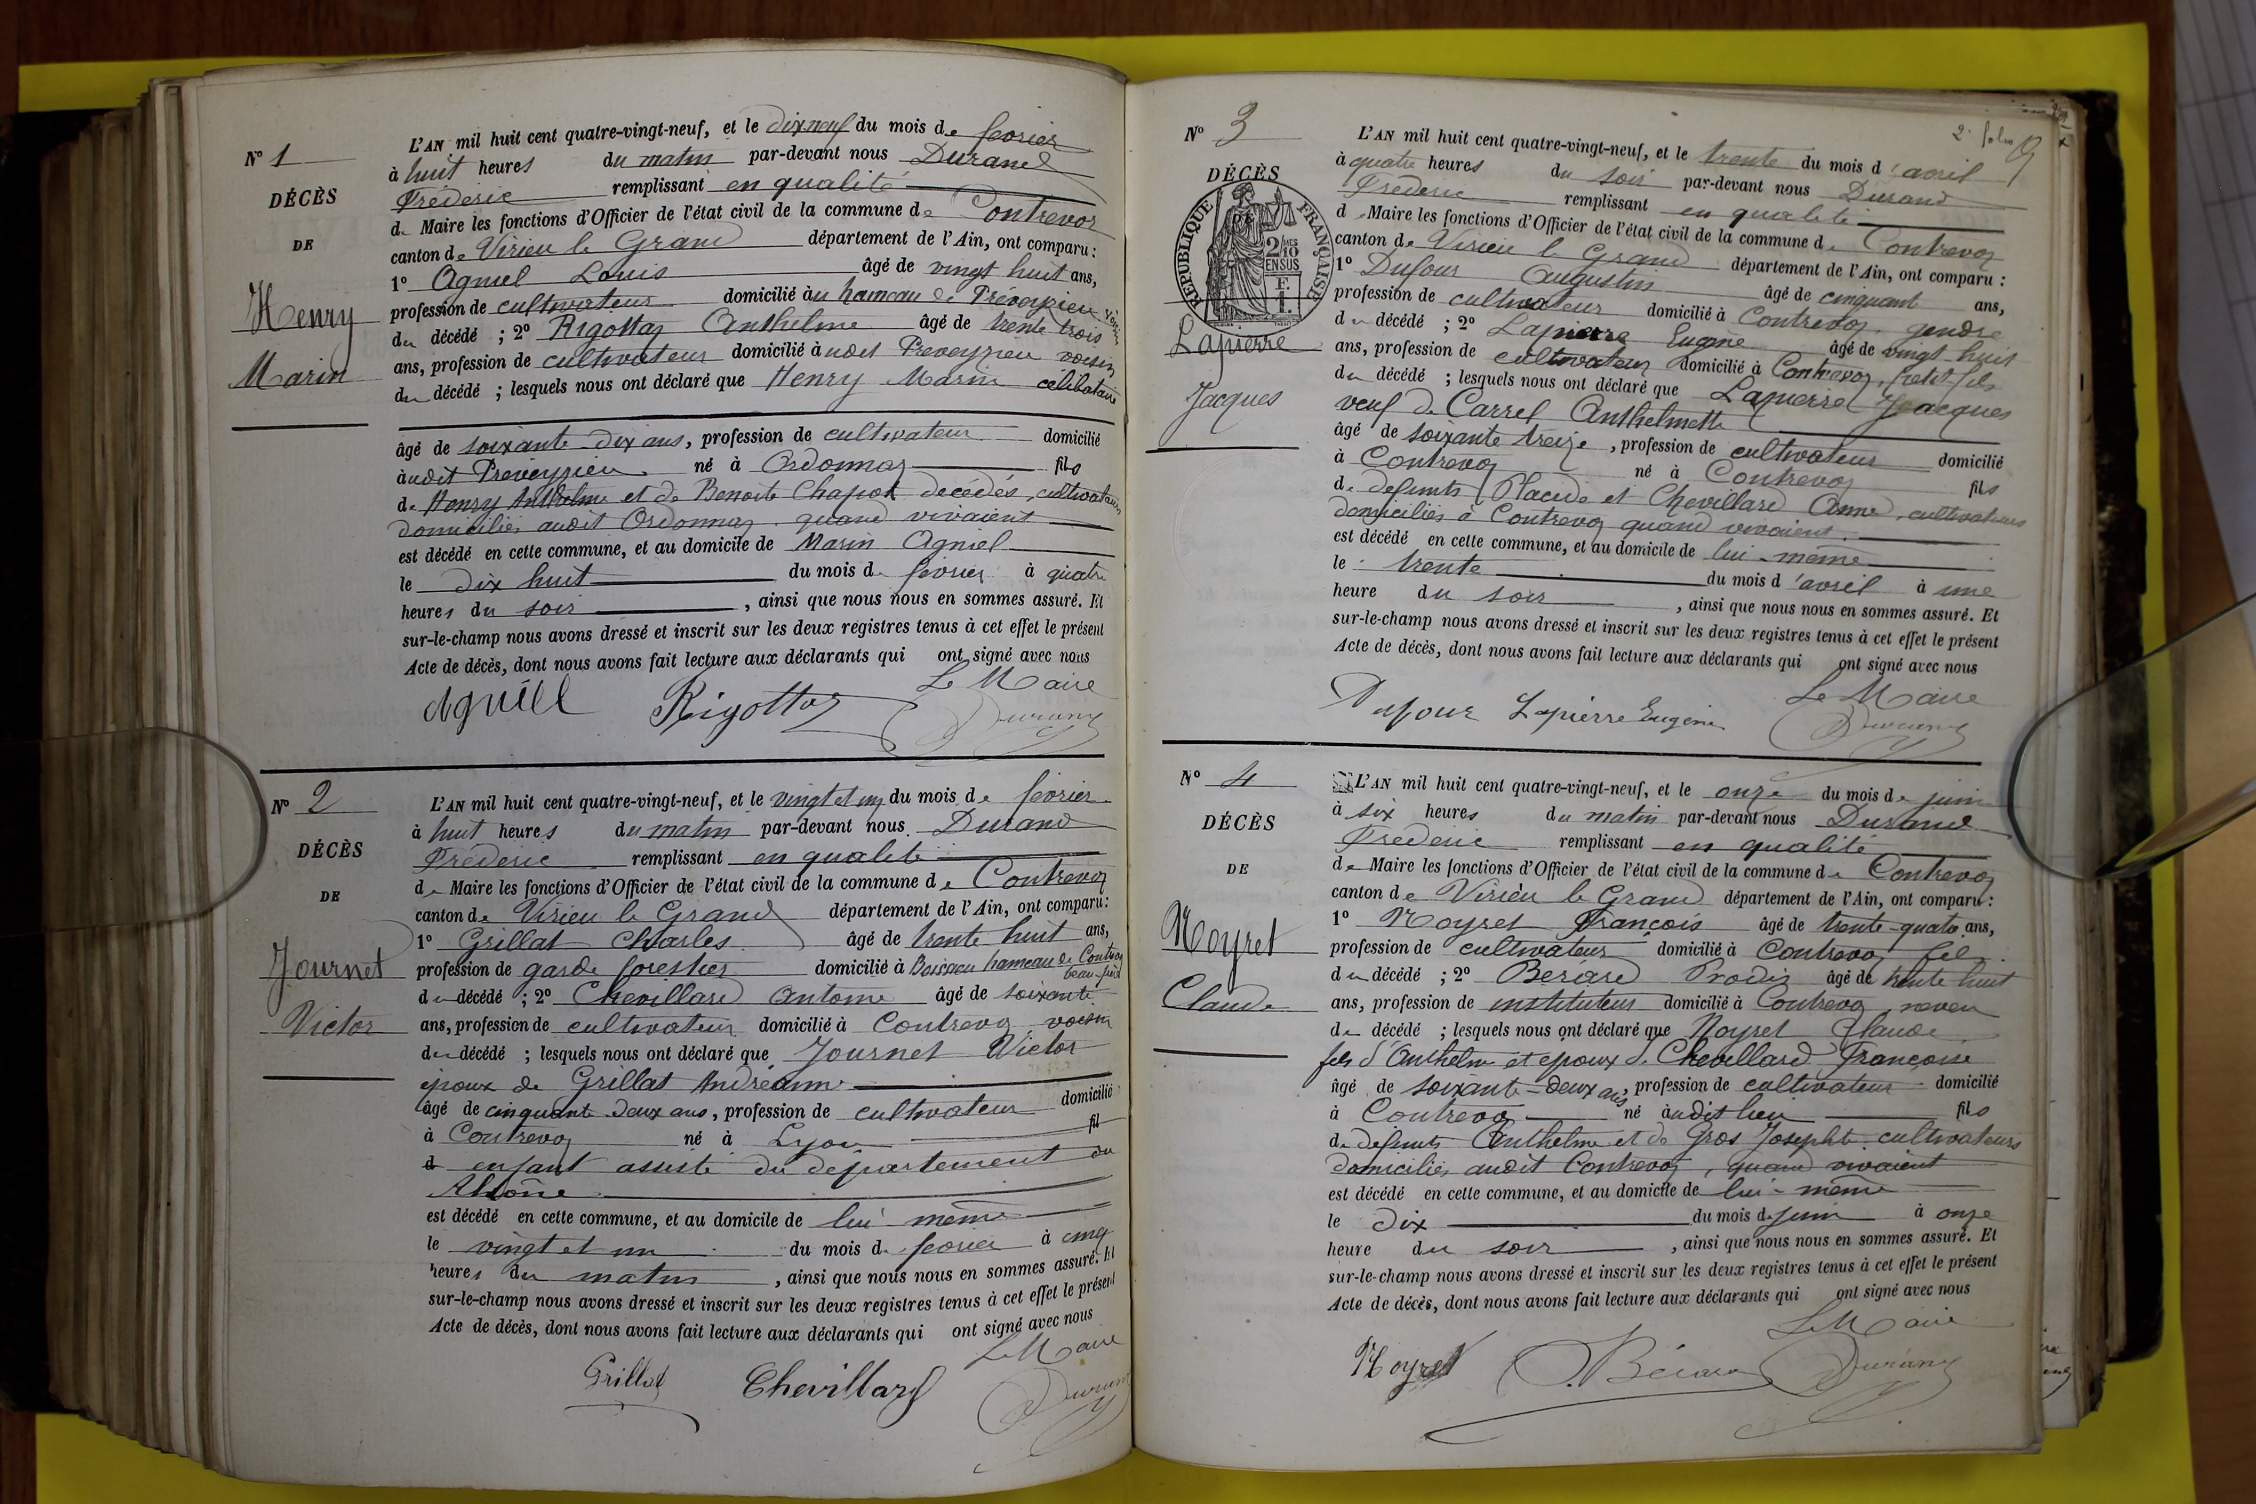 N° 1
DÉCÈS
DE
Henry
Marin
L'AN mil huit cent quatre-vingt-neuf, et le dix neuf du mois de février
à huit heures du matin par-devant nous Durand
Fréderic remplissant en qualité
de Maire les fonctions d'Officier de l'état civil de la commune de Contrevoz
canton de Virieu le Grand département de l'Ain, ont comparu :
1° Agniel Louis âgé de vingt huit ans,
profession de cultivateur domicilié au hameau de Préveyzieu voisin
du décédé ; 2° Rigottaz Anthelme âgé de trente trois
ans, profession de cultivateur domicilié à udit Preveyzieu voisin
du décédé ; lesquels nous ont déclaré que Henry Marin célibataire
âgé de soixante dix ans, profession de cultivateur domicilié
àudit Preveyzieu né à Ordonnaz fils
de Henry Anthelme et de Benoite Chapot décédés, cultivateurs
domiciliés audit Ordonnaz quand vivaient
est décédé en cette commune, et au domicile de Marin Agniel
le dix huit du mois de février à quatre
heures du soir , ainsi que nous nous en sommes assuré. Et
sur-le-champ nous avons dressé et inscrit sur les deux registres tenus à cet effet le présent
Acte de décès, dont nous avons fait lecture aux déclarants qui ont signé avec nous
Le Maire
Rigottaz Durand
N° 2
DÉCÈS
DE
Journet
Victor
L'AN mil huit cent quatre-vingt-neuf, et le vingt et un du mois de février
à huit heures du matin par-devant nous Durand
Fréderic remplissant en qualité
de Maire les fonctions d'Officier de l'état civil de la commune de Contrevoz
canton de Virieu le Grand département de l'Ain, ont comparu :
1° Grillat Charles âgé de trente huit ans,
profession de garde forestier domicilié à hameau de Contrevoz
beau-frère
du décédé ; 2° Chevillard Antoine âgé de soixante
ans, profession de cultivateur domicilié à Contrevoz voisin
du décédé ; lesquels nous ont déclaré que Journet Victor
époux de Grillat Andréanne
âgé de cinquante deux ans, profession de cultivateur domicilié
à Contrevoz né à Lyon fil
d enfant assisté du département du
Rhône
est décédé en cette commune, et au domicile de lui même
le vingt et un du mois de février à cinq
heures du matin , ainsi que nous nous en sommes assuré. Et
sur-le-champ nous avons dressé et inscrit sur les deux registres tenus à cet effet le présent
Acte de décès, dont nous avons fait lecture aux déclarants qui ont signé avec nous
Le Maire
Grillat Chevillard Durand
2e folio
N° 3
DÉCÈS
DE
RÉPUBLIQUE FRANÇAISE
2/10 EN SUS
Lapierre
Jacques
L'AN mil huit cent quatre-vingt-neuf, et le trente du mois d'avril
à quatre heures du soir par-devant nous Durand
Fréderic remplissant en qualité
de Maire les fonctions d'Officier de l'état civil de la commune de Contrevoz
canton de Virieu le Grand département de l'Ain, ont comparu :
1° Dufour Augustin âgé de cinquant ans,
profession de cultivateur domicilié à Contrevoz gendre
du décédé ; 2° Lapierre Eugène âgé de vingt huit
ans, profession de cultivateur domicilié à Contrevoz, petit-fils
du décédé ; lesquels nous ont déclaré que Lapierre Jacques
veuf de Carrel Anthelmette
âgé de soixante treize, profession de cultivateur domicilié
à Contrevoz né à Contrevoz fils
de défunts Placide et Chevillard Anne, cultivateurs
domiciliés à Contrevoz quand vivaient
est décédé en cette commune, et au domicile de lui-même
le trente du mois d'avril à une
heure du soir , ainsi que nous nous en sommes assuré. Et
sur-le-champ nous avons dressé et inscrit sur les deux registres tenus à cet effet le présent
Acte de décès, dont nous avons fait lecture aux déclarants qui ont signé avec nous
Le Maire
Dufour Lapierre Eugène Durand
N° 4
DÉCÈS
DE
Moyret
Claude
L'AN mil huit cent quatre-vingt-neuf, et le onze du mois de juin
à six heures du matin par-devant nous Durand
Fréderic remplissant en qualité
de Maire les fonctions d'Officier de l'état civil de la commune de Contrevoz
canton de Virieu le Grand département de l'Ain, ont comparu :
1° Moyret François âgé de trente-quatre ans,
profession de cultivateur domicilié à Contrevoz fils
du décédé ; 2° Berard âgé de trente huit
ans, profession de instituteur domicilié à Contrevoz neveu
du décédé ; lesquels nous ont déclaré que Moyret Claude
fils d'Anthelme et époux de Chevillard Françoise
âgé de soixante-deux ans, profession de cultivateur domicilié
à Contrevoz né àudit lieu fils
de défunts Anthelme et de Gros Josephte cultivateurs
domiciliés audit Contrevoz, quand vivaient
est décédé en cette commune, et au domicile de lui-même
le dix du mois de juin à onze
heure du soir , ainsi que nous nous en sommes assuré. Et
sur-le-champ nous avons dressé et inscrit sur les deux registres tenus à cet effet le présent
Acte de décès, dont nous avons fait lecture aux déclarants qui ont signé avec nous
Le Maire
Moyret Bérard Durand